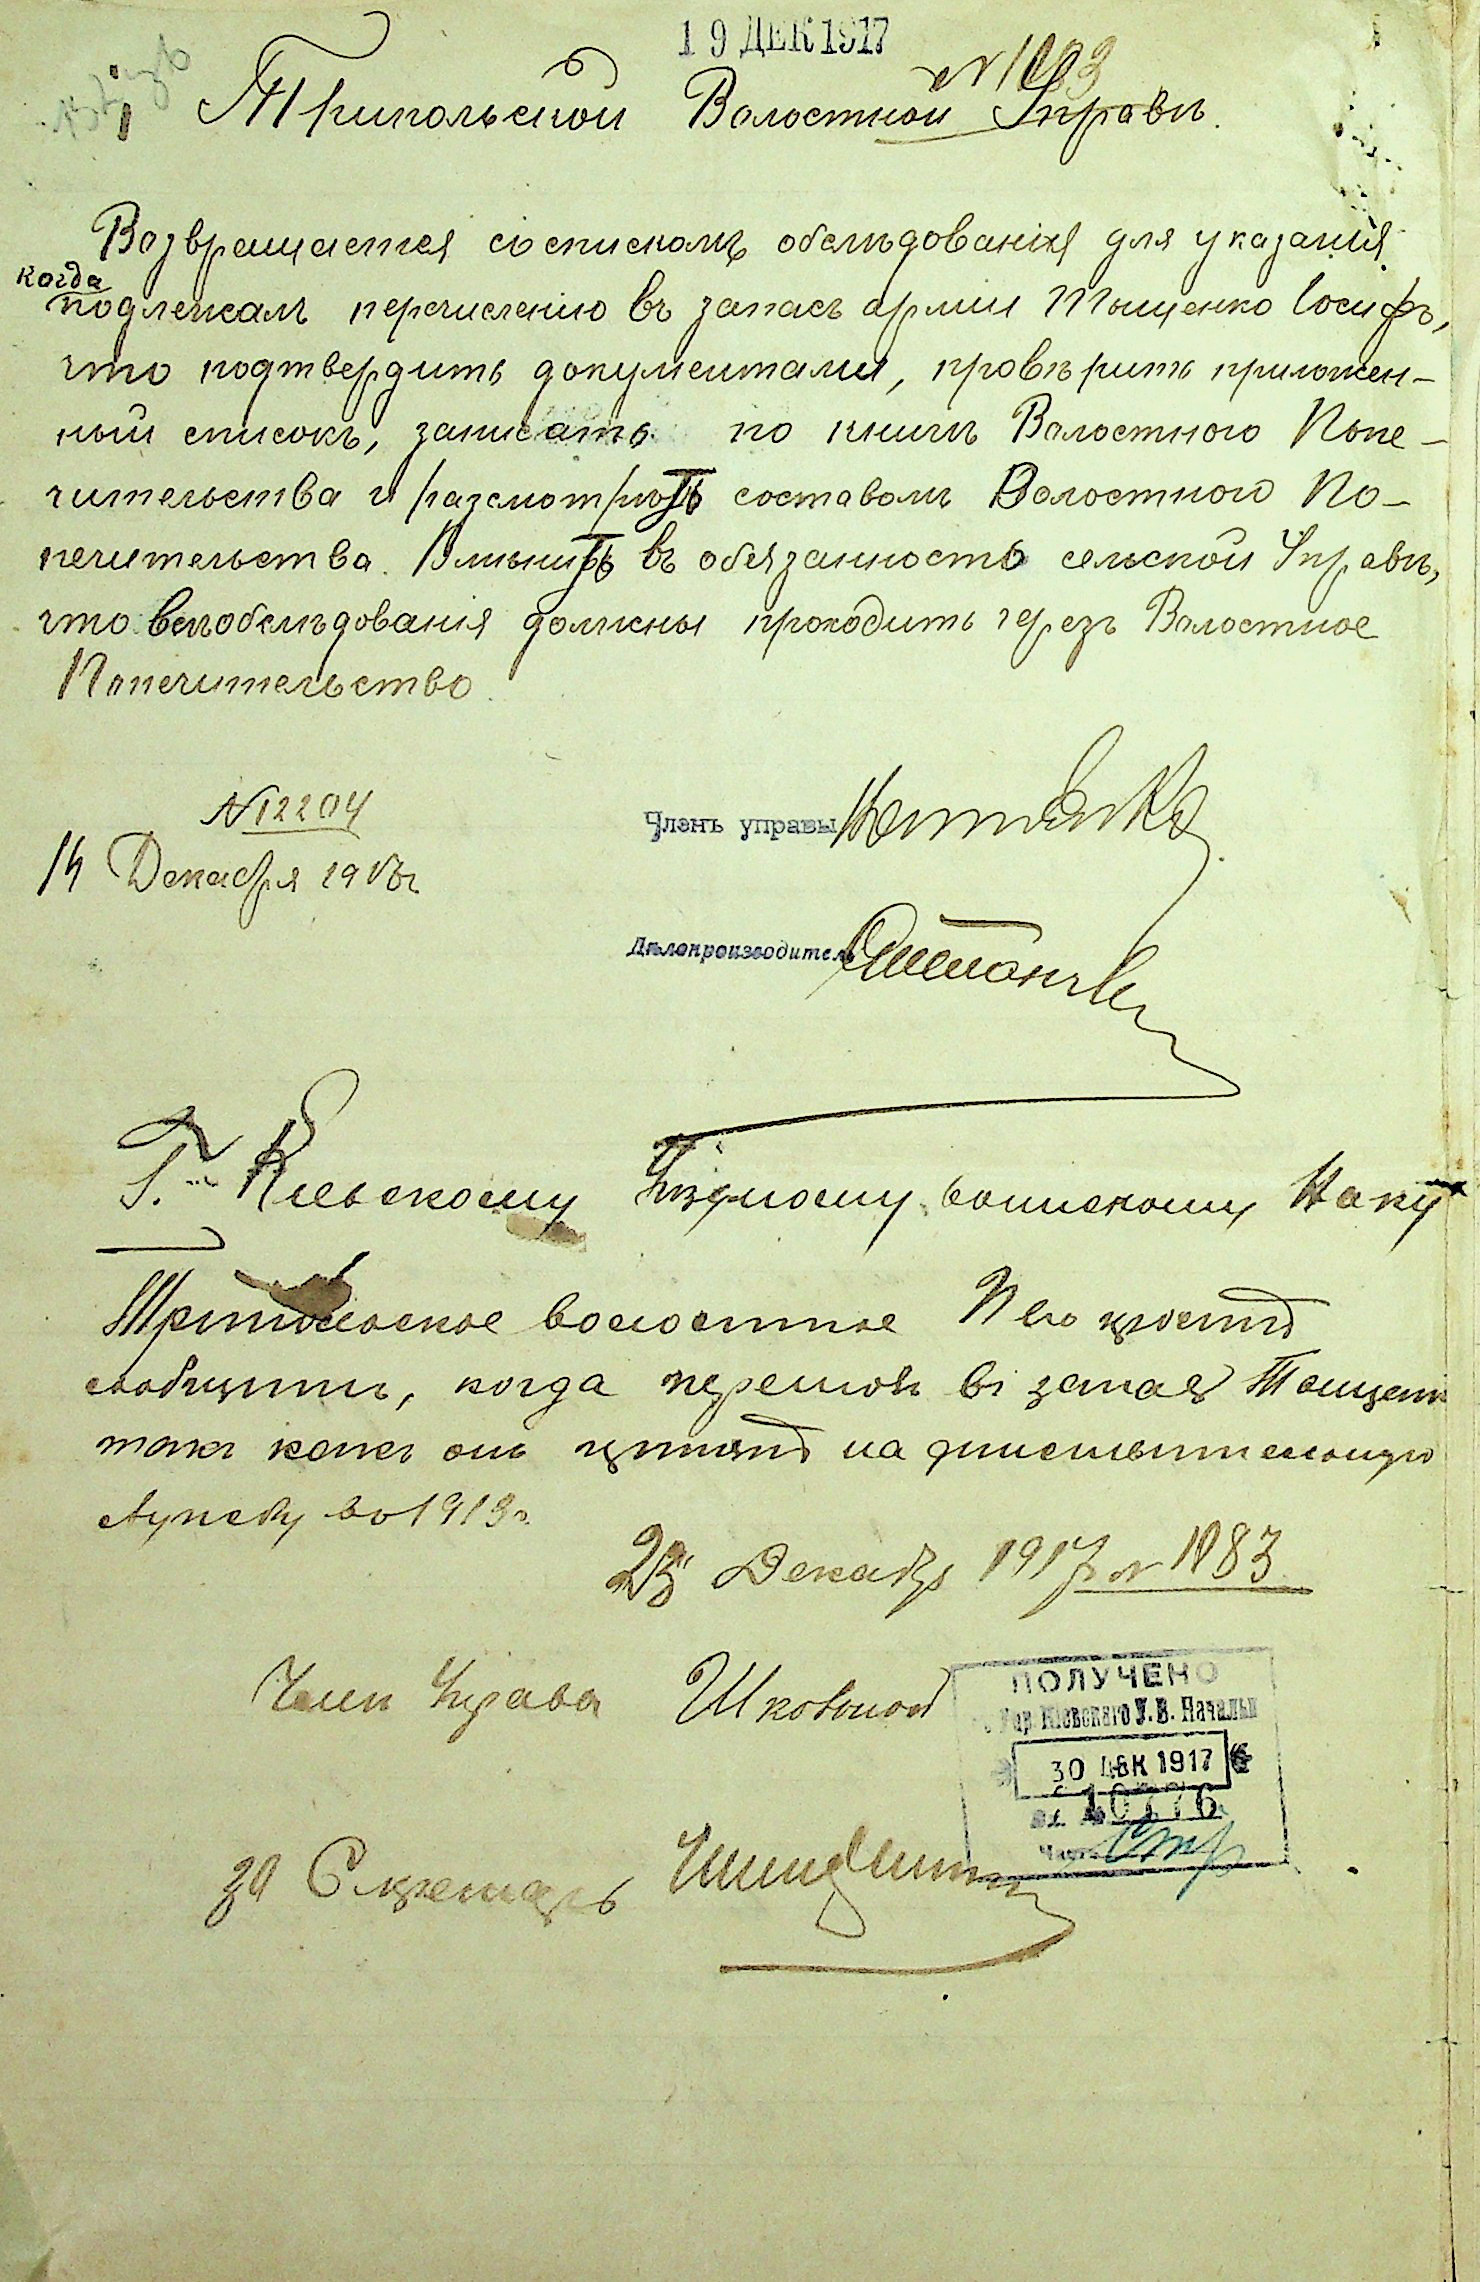 19 ДЕК 1917
Трипольской Волостной Управѣ.
Возвращается со спискомъ обслѣдованія для указанія
когда
подлежалъ перечисленію въ запасъ арміи Тыщенко Іосифъ,
что подтвердить документами, провѣрить приложен-
ный списокъ, записать по книгѣ Волостного Попе-
чительства и разсмотрѣть составомъ Волостного По-
печительства. Вмѣнить въ обязанность сельской Управѣ,
что всѣ обслѣдованія должны проходить черезъ Волостное
Попечительство.
№ 12204
14 Декабря 1917 г.
Членъ управы
Дѣлопроизводитель
Г. Кіевскому Уѣздному воинскому Наку
Трипольское волостное проситъ
сообщить, когда перешолъ въ запас Тыщенк
такъ какъ онъ на дѣйствительную
службу въ 1913 г.
23 Декабр 1917 г. № 1883
Член Управы Шковыой
ПОЛУЧЕНО
Упр. Кіевскаго У. В. Начальн
30 ДЕК 1917
10776
Часть
за Секретарь